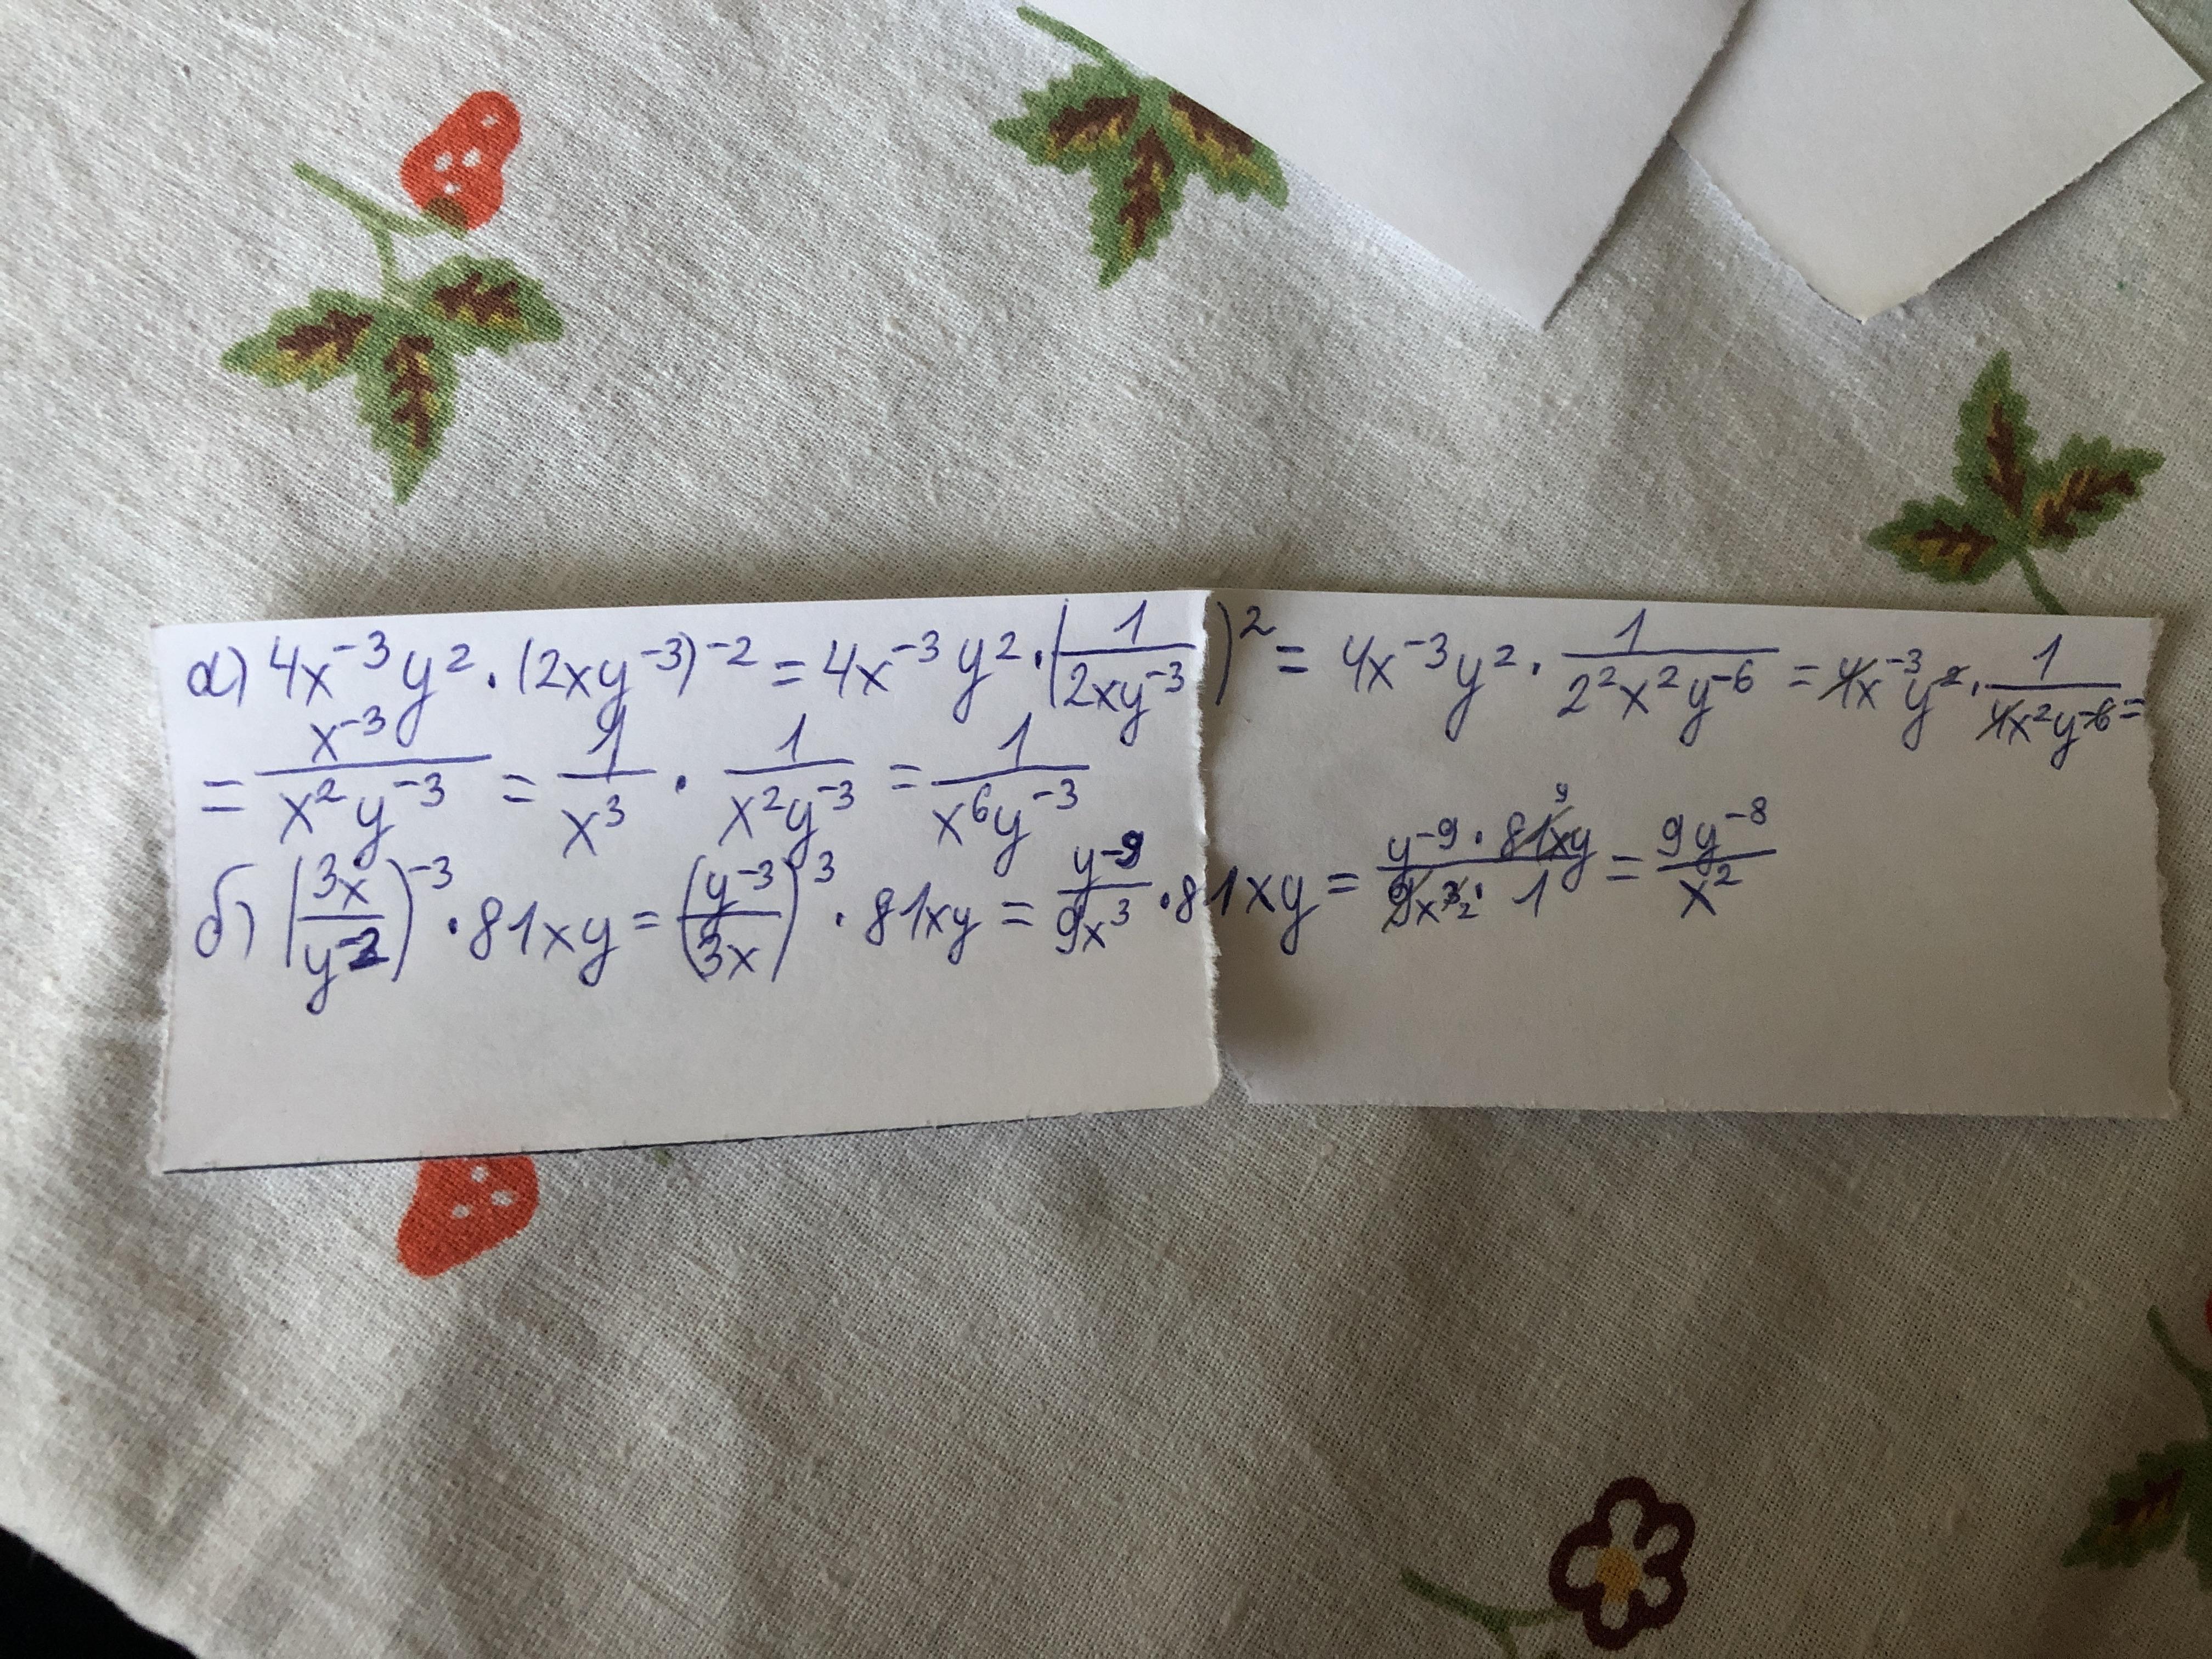 а) 4x⁻³y² · (2xy⁻³)⁻² = 4x⁻³y² · (1/(2xy⁻³))² = 4x⁻³y² · 1/(2²x²y⁻⁶) = 4x⁻³y² · 1/(4x²y⁻⁶) =
= x⁻³/(x²y⁻³) = 1/x³ · 1/(x²y⁻³) = 1/(x⁶y⁻³)
б) (3x/y⁻²)⁻³ · 81xy = (y⁻³/3x)³ · 81xy = y⁻⁹/(9x³) · 81xy = (y⁻⁹ · 81xy)/(9x³ · 1) = 9y⁻⁸/x²